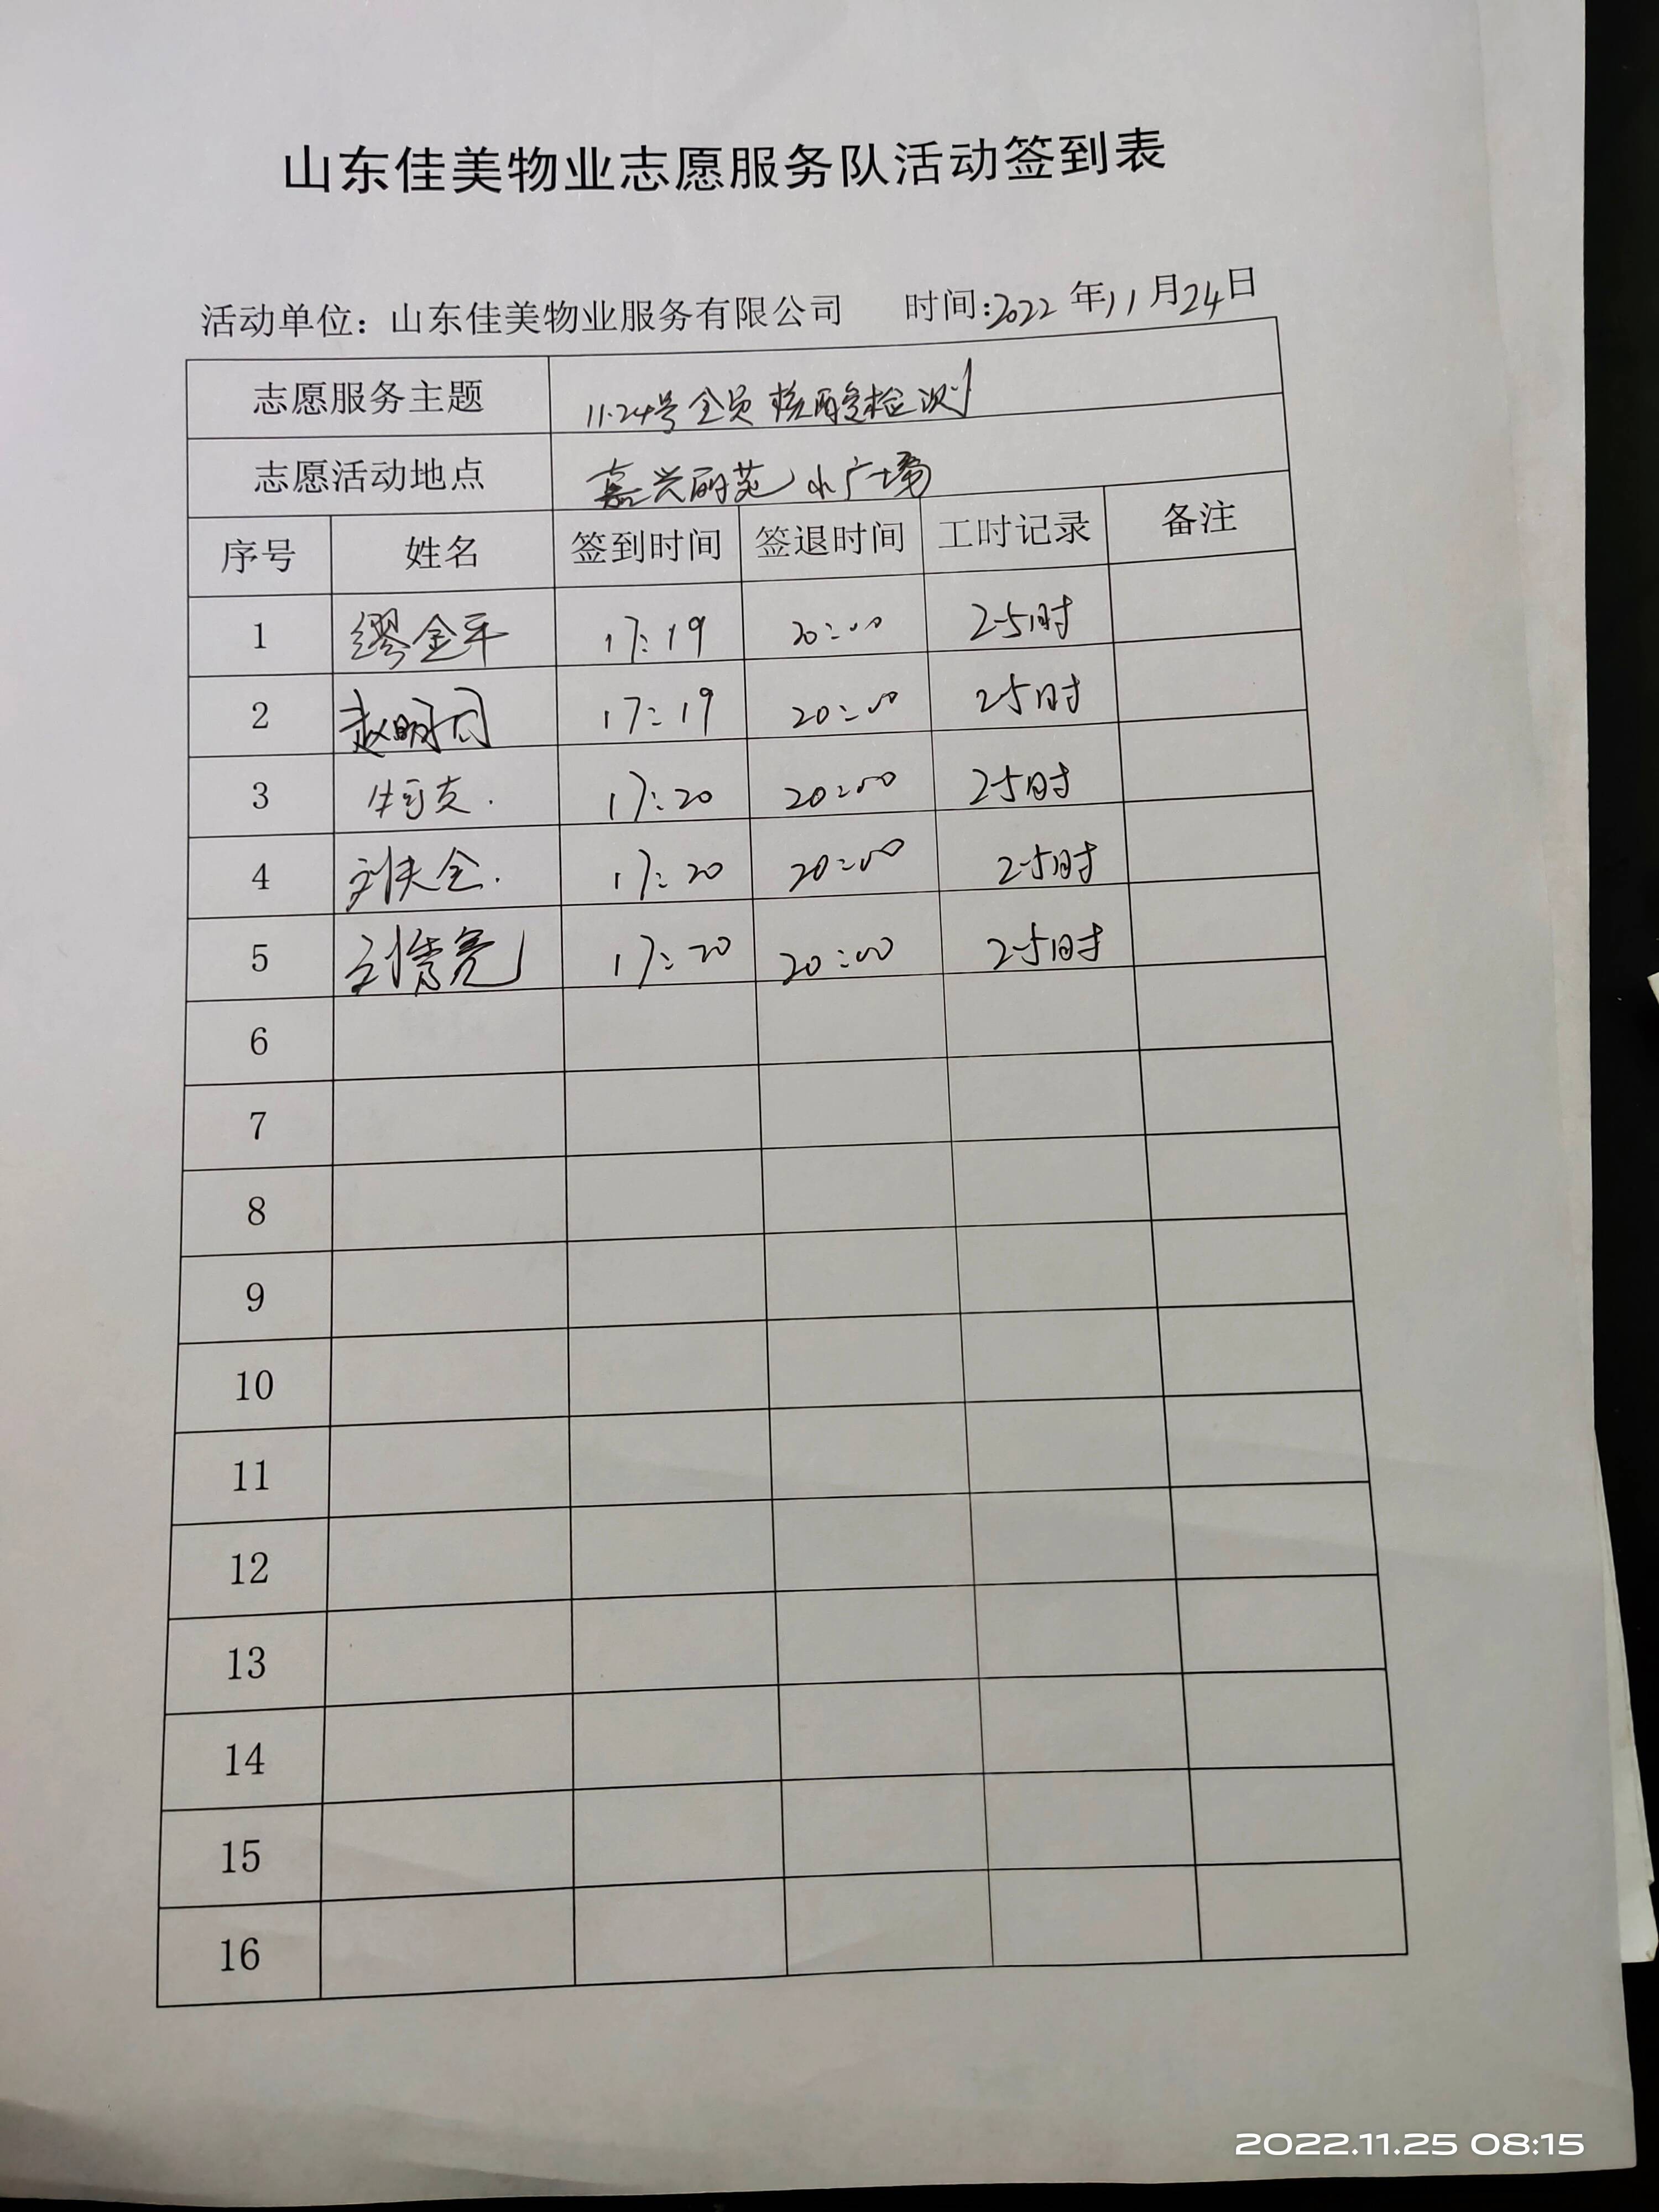 山东佳美物业志愿服务队活动签到表
活动单位：山东佳美物业服务有限公司 时间：2022年11月24日
志愿服务主题 11.24号全员核酸检测
志愿活动地点 嘉兴丽苑小广场
序号 姓名 签到时间 签退时间 工时记录 备注
1 缪金平 17:19 20:00 2.5时
2 赵明 17:19 20:00 2.5时
3 17:20 20:00 2.5时
4 刘夫全. 17:20 20:00 2.5时
5 刘秀亮 17:20 20:00 2.5时
6
7
8
9
10
11
12
13
14
15
16
2022.11.25 08:15